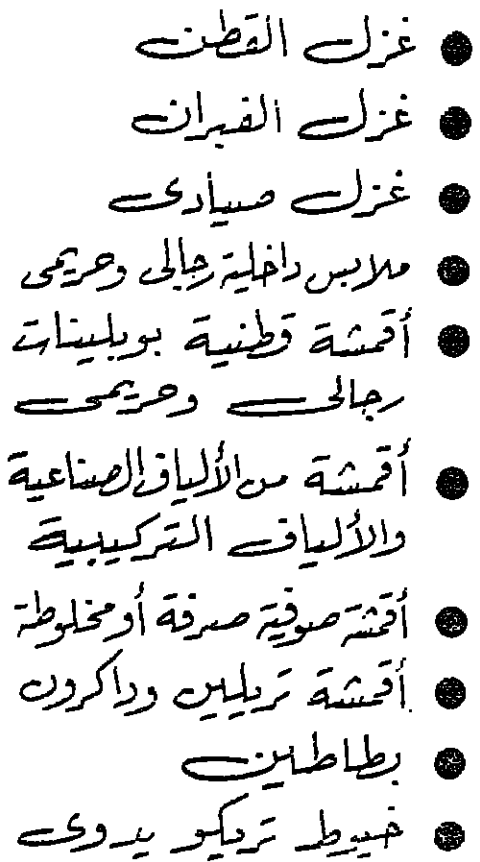 ● غزل القطن
● غزل الفبران
● غزل صيادى
● ملابس داخلية رجالى وحريمى
● أقمشة قطنية بوبلينات
رجالى وحريمى
● أقمشة من الألياف الصناعية
والألياف التركيبية
● أقمشة صوفية صرفة أو مخلوطة
● أقمشة تريلين وداكرون
● بطاطين
● خيط تريكو يدوى